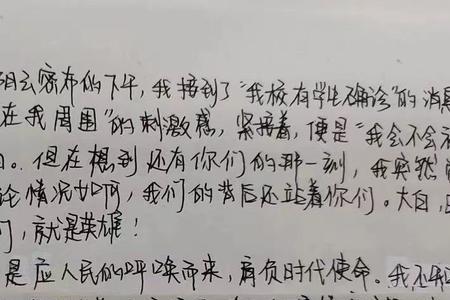 阴云密布的下午,我接到了“我校有学生确诊”的消息
在我周围”的刺激感,紧接着,便是“我会不会
。但在想到还有你们的那一刻,我突然
论情况如何,我们的背后还站着你们。大白,
们,就是英雄!
是应人民的呼唤而来,肩负时代使命。我还